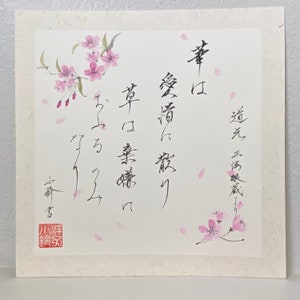 道元 正法眼蔵より
華は
愛惜に散り
草は棄嫌に
おふるのみ
なり